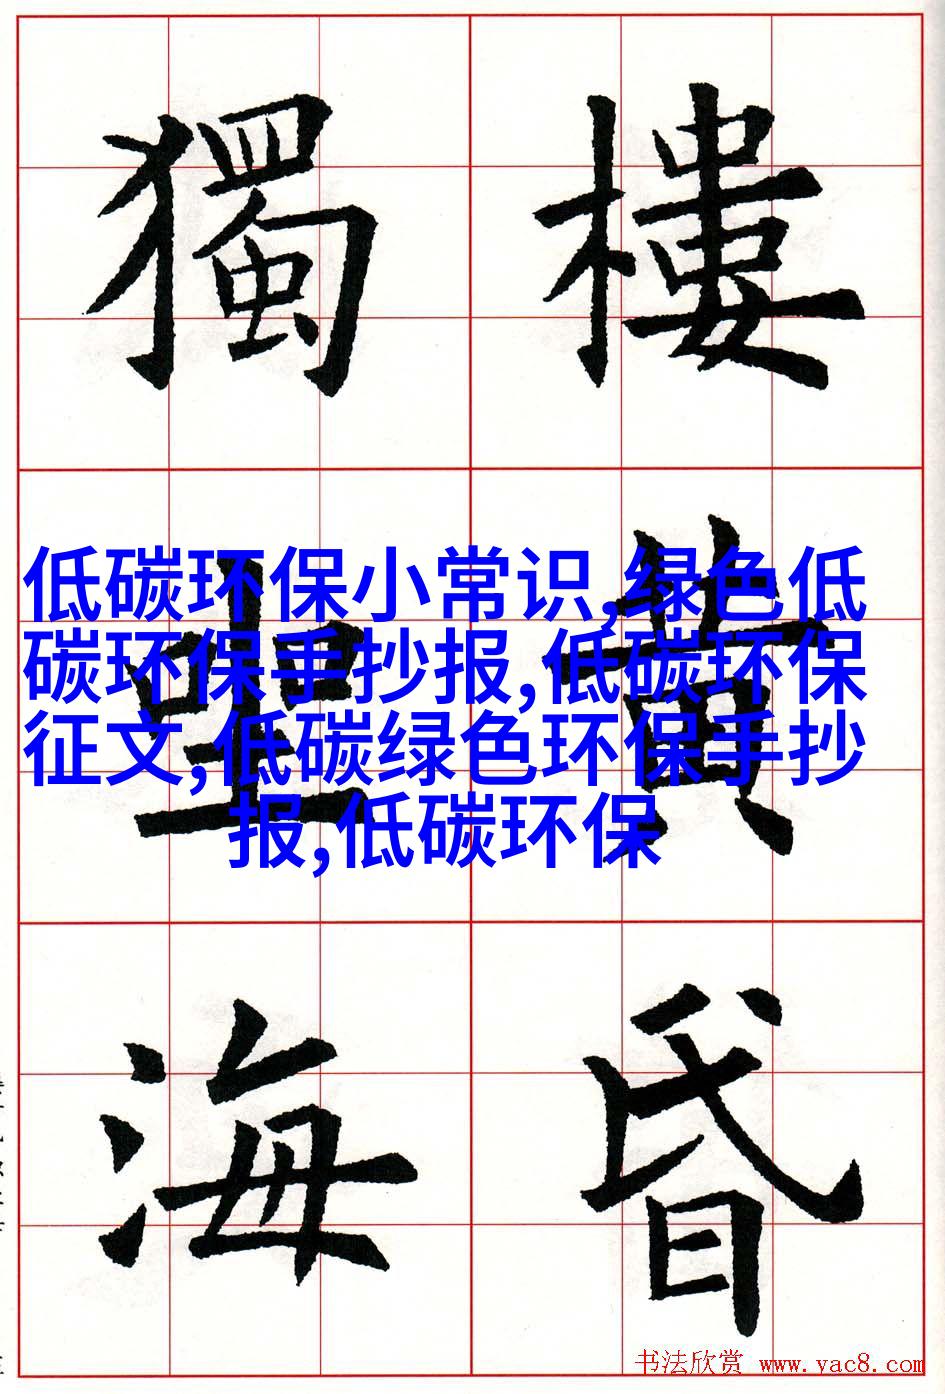 樓黃昏
獨坐海
低碳环保小常识,绿色低
碳环保手抄报,低碳环保
征文,低碳绿色环保手抄
报,低碳环保
书法欣赏 www.yac8.com